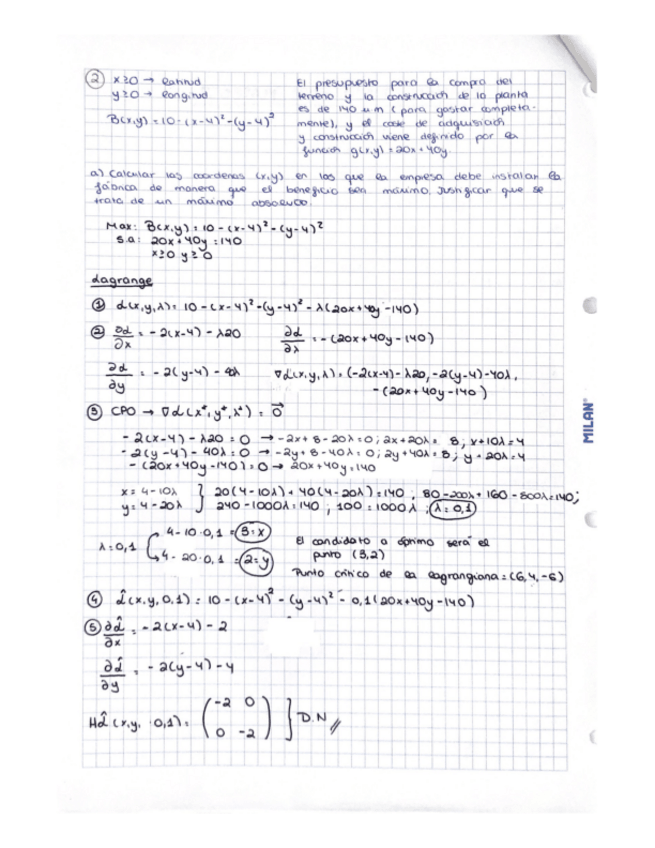 ② x≥0 → latitud
y≥0 → longitud
B(x,y) = 10-(x-4)²-(y-4)²
El presupuesto para la compra del
terreno y la construcción de la planta
es de 140 um (para gastar completa-
mente), y el coste de adquisición
y construcción viene definido por la
función g(x,y) = 20x + 40y.
a) Calcular las coordenas (x,y) en las que la empresa debe instalar la
fábrica de manera que el beneficio sea máximo. Justificar que se
trata de un máximo absoluto.
Max: B(x,y) = 10-(x-4)²-(y-4)²
s.a: 20x + 40y = 140
x≥0 y≥0
Lagrange
① L(x,y,λ) = 10-(x-4)²-(y-4)²-λ(20x+40y-140)
② ∂L/∂x = -2(x-4) - λ20 ∂L/∂λ = -(20x+40y-140)
∂L/∂y = -2(y-4) - 40λ ∇L(x,y,λ) = (-2(x-4)-λ20, -2(y-4)-40λ,
-(20x+40y-140)
③ CPO → ∇L(x*, y*, λ*) = 0⃗
-2(x-4) - λ20 = 0 → -2x + 8 - 20λ = 0; 2x + 20λ = 8; x + 10λ = 4
-2(y-4) - 40λ = 0 → -2y + 8 - 40λ = 0; 2y + 40λ = 8; y + 20λ = 4
-(20x+40y-140) = 0 → 20x + 40y = 140
x = 4-10λ } 20(4-10λ) + 40(4-20λ) = 140; 80-200λ + 160 - 800λ = 140;
y = 4-20λ } 240 - 1000λ = 140; 100 = 1000λ; λ = 0,1
λ = 0,1
4 - 10·0,1 = 3 = x
4 - 20·0,1 = 2 = y
El candidato a óptimo será el
punto (3,2)
Punto crítico de la lagrangiana = (6,4,-6)
④ L̂(x,y,0,1) = 10-(x-4)²-(y-4)²-0,1(20x+40y-140)
⑤ ∂L̂/∂x = -2(x-4) - 2
∂L̂/∂y = -2(y-4) - 4
HL̂(x,y, 0,1) = ( -2 0
0 -2 ) } D.N //
MILAN®